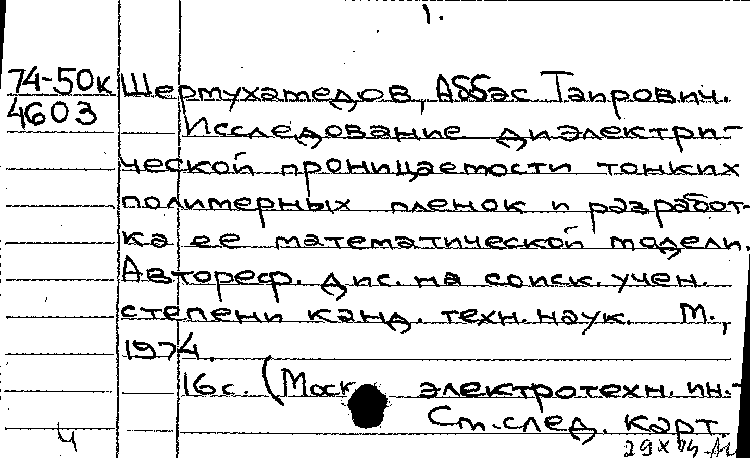 1.
74-50к Шермухамедов, Аббас Таирович.
4603 Исследование диэлектри-
ческой проницаемости тонких
полимерных пленок и разработ-
ка ее математической модели.
Автореф. дис. на соиск. учен.
степени канд. техн. наук. М.,
1974.
16 с. (Моск. электротехн. ин-
См. след. карт.
Ч 29 X 74